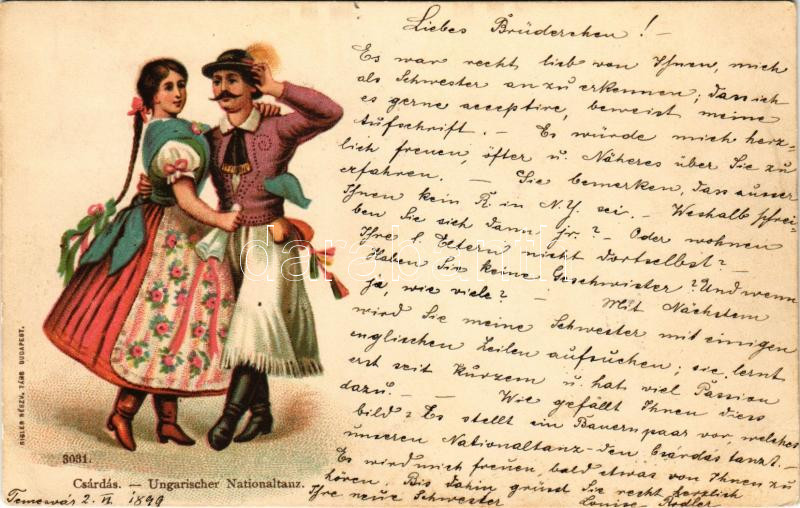 Liebes Brüderchen ! –
Es war recht lieb von Ihnen, mich
als Schwester anzuerkennen; dass ich
es gerne acceptire, beweist meine
Aufschrift. – Es würde mich herz-
lich freuen, öfter u. Näheres über Sie zu
erfahren. – Sie bemerken, dass ausser
Ihnen kein R. in N.Y. sei. – Weshalb schrei-
ben Sie sich dann jr.? – Oder wohnen
Ihre l. Eltern nicht dortselbst? –
Haben Sie keine Geschwister? Und wenn
ja, wie viele? – Mit Nächstem
wird Sie meine Schwester mit einigen
englischen Zeilen aufsuchen; sie lernt
erst seit kurzem u. hat viel Passion
dazu. – – Wie gefällt Ihnen diess
bild? Es stellt ein Bauernpaar vor, welches
unseren Nationaltanz - den Csárdás tanzt. –
Es wird mich freuen, bald etwas von Ihnen zu
hören. Bis dahin grüsst Sie recht herzlich
Ihre neue Schwester Louise Rodler
RIGLER RÉSZV. TÁRS BUDAPEST.
3031.
Csárdás. — Ungarischer Nationaltanz.
Temesvár 2. VI. 1899
darabanth